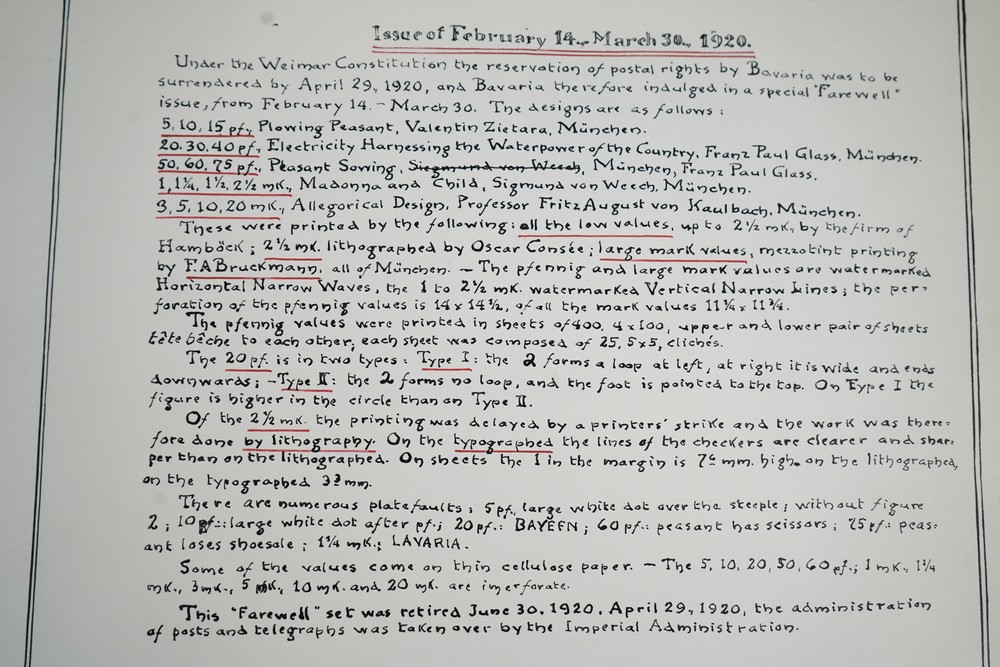 Issue of February 14., March 30., 1920.
Under the Weimar Constitution the reservation of postal rights by Bavaria was to be
surrendered by April 29, 1920, and Bavaria therefore indulged in a special "Farewell"
issue, from February 14. - March 30. The designs are as follows:
5, 10, 15 pf., Plowing Peasant, Valentin Zietara, München.
20. 30. 40 pf., Electricity Harnessing the Waterpower of the Country, Franz Paul Glass, München.
50, 60. 75 pf., Peasant Sowing, Siegmund von Weech, München, Franz Paul Glass.
1, 1¼, 1½, 2½ mk., Madonna and Child, Sigmund von Weech, München.
3, 5, 10, 20 mk., Allegorical Design, Professor Fritz August von Kaulbach, München.
These were printed by the following: all the low values, up to 2½ mk, by the firm of
Hamböck; 2½ mk. lithographed by Oscar Consée; large mark values, mezzotint printing
by F.A Bruckmann, all of München. - The pfennig and large mark values are watermarked
Horizontal Narrow Waves, the 1 to 2½ mk. watermarked Vertical Narrow Lines; the per-
foration of the pfennig values is 14 x 14½, of all the mark values 11¼ x 11¾.
The pfennig values were printed in sheets of 400, 4 x 100, upper and lower pair of sheets
tête bêche to each other; each sheet was composed of 25, 5x5, clichés.
The 20 pf. is in two types: Type I: the 2 forms a loop at left, at right it is wide and ends
downwards; - Type II: the 2 forms no loop, and the foot is pointed to the top. On Type I the
figure is higher in the circle than on Type II.
Of the 2½ mk. the printing was delayed by a printers' strike and the work was there=
fore done by lithography. On the typographed the lines of the checkers are clearer and shar=
per than on the lithographed. On sheets the 1 in the margin is mm. high on the lithographed,
on the typographed mm.
There are numerous platefaults; 5 pf. large white dot over the steeple; without figure
2; 10 pf.: large white dot after pf.; 20 pf.: BAYEEN; 60 pf.: peasant has scissors; 75 pf.: peas=
ant loses shoesole; 1¼ mk.: LAVARIA.
Some of the values come on thin cellulose paper. - The 5, 10, 20, 50, 60 pf.; 1 mk., 1¼
mk., 3 mk., 5 mk., 10 mk. and 20 mk. are imperforate.
This "Farewell" set was retired June 30. 1920. April 29., 1920, the administration
of posts and telegraphs was taken over by the Imperial Administration.